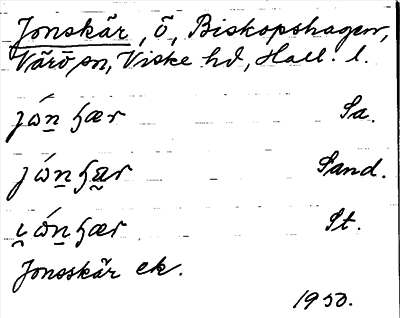 Jonskär, ö, Biskopshagen,
Värö sn, Viske hd, Hall. l.
jώn̲ ɧær Sa.
jώn̲ ɧæ̰r Sand.
i̯ ώn̲ ɧær St.
Jonsskär ek.
1950.